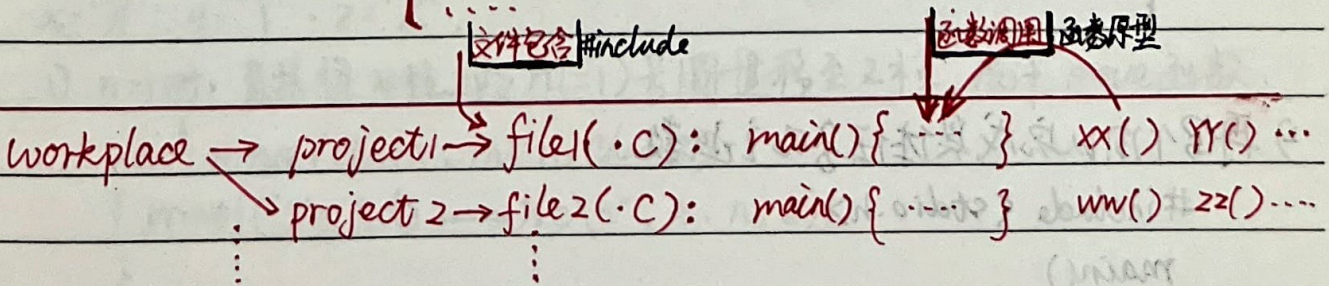 文件包含 #include 函数调用 函数原型
workplace → project1 → file1(.C): main(){……} xx() YY()…
project2 → file2(.C): main(){……} ww() zz()….